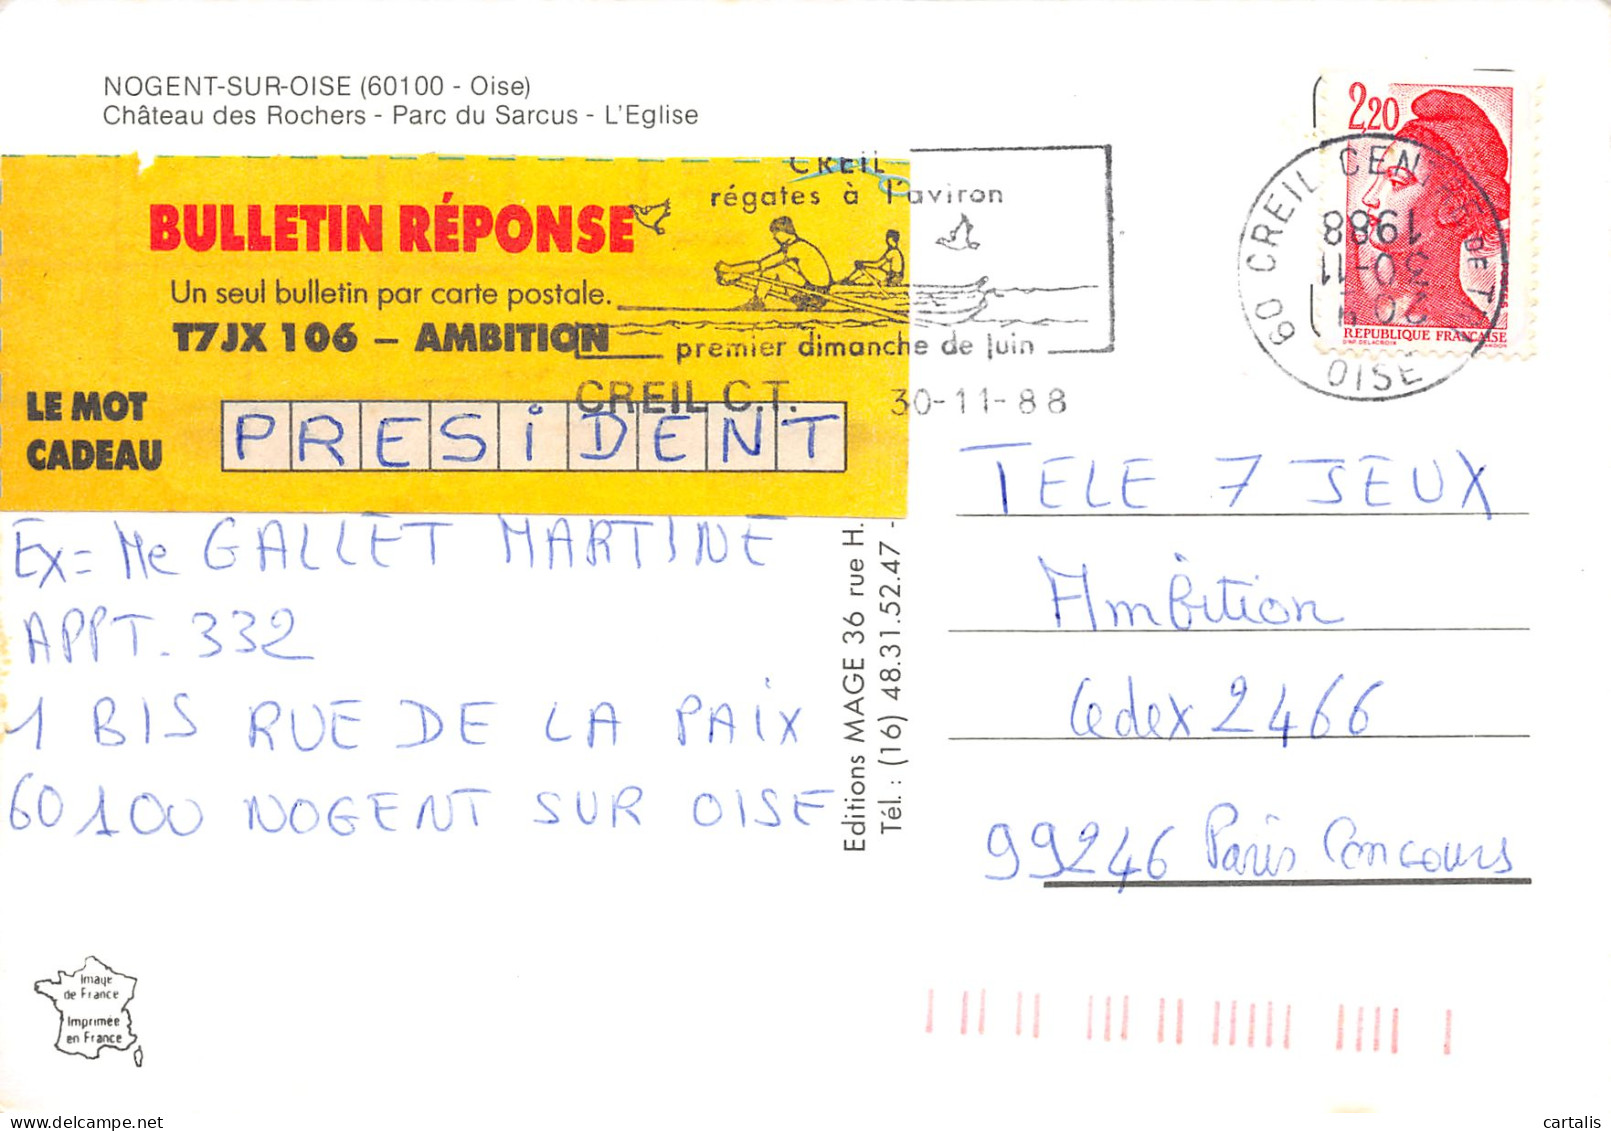 NOGENT-SUR-OISE (60100 - Oise)
Château des Rochers - Parc du Sarcus - L'Eglise
BULLETIN RÉPONSE
Un seul bulletin par carte postale.
T7JX 106 – AMBITION
LE MOT
CADEAU
PRESiDENT
CREIL
régates à l'aviron
premier dimanche de Juin
CREIL C.T.
30-11-88
2,20
REPUBLIQUE FRANÇAISE
60 CREIL CENTRE DE T
1988
30-11
OISE
EX= Me GALLET MARTINE
APPT. 332
1 BIS RUE DE LA PAIX
60100 NOGENT SUR OISE
Editions MAGE 36 rue H.
Tél. : (16) 48.31.52.47 -
TELE 7 JEUX
Ambition
Cedex 2466
99246 Paris Concours
Image
de France
Imprimée
en France
cartalis